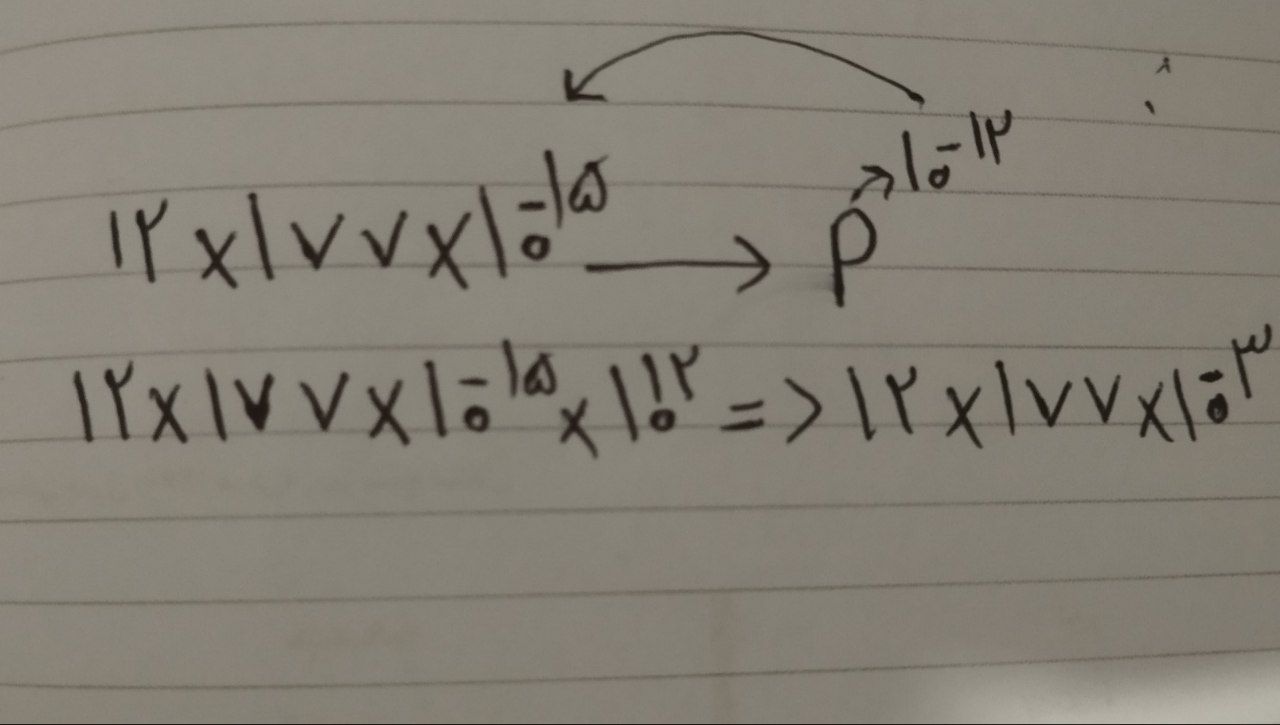 ۱۲ × ۱۷۷ × ۱۰^-۱۵ → P → ۱۰^-۱۲
۱۲ × ۱۷۷ × ۱۰^-۱۵ × ۱۰^۱۲ => ۱۲ × ۱۷۷ × ۱۰^-۳